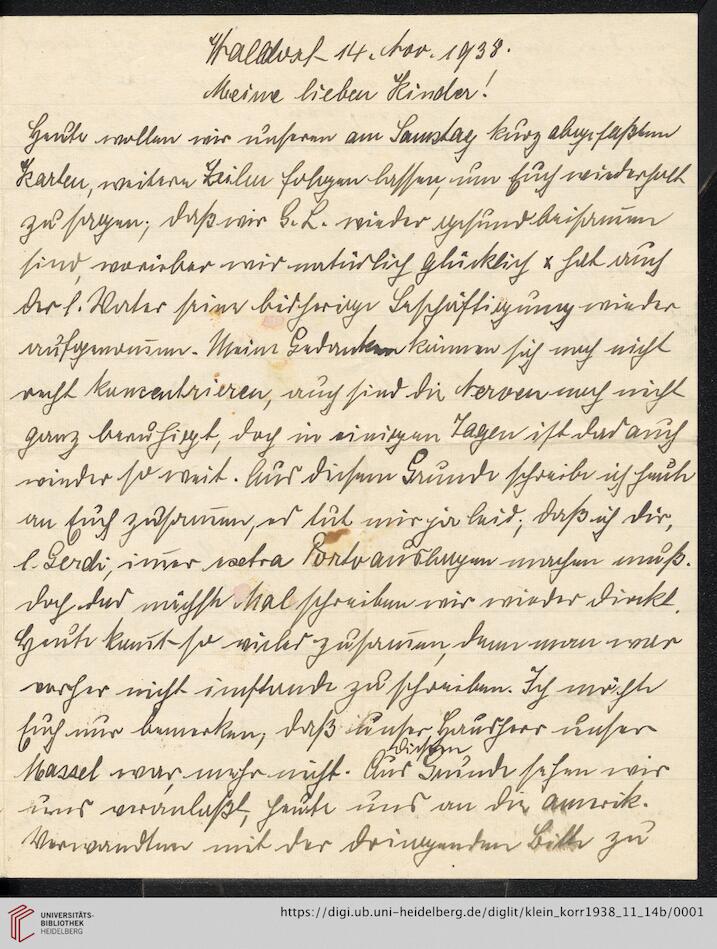 Walldorf 14. Nov. 1938.
Meine lieben Kinder!
Heute wollen wir unseren am Samstag kurz abgefaßten
Karten, weitere Zeilen folgen lassen, um Euch wiederholt
zu sagen; daß wir G. L. wieder gesund beisammen
sind, worüber wir natürlich glücklich & hat auch
der l. Vater seine bisherige Beschäftigung wieder
aufgenommen. Meine Gedanken können sich noch nicht
recht konzentrieren, auch sind die Nerven noch nicht
ganz beruhigt, doch in einigen Tagen ist das auch
wieder so weit. Aus diesem Grunde schreibe ich heute
an Euch zusammen, es tut mir ja leid; daß ich dir,
l. Gerdi, immer extra Portoauslagen machen muß.
doch das nächste Mal schreiben wir wieder direkt.
Heute kommt so vieles zusammen, denn man war
vorher nicht imstande zu schreiben. Ich möchte
Euch nur bemerken; daß unser Hausherr unser
Massel war, mehr nicht. Aus diesem Grunde sehen wir
uns veranlaßt, heute uns an die amerik.
Verwandten mit der dringenden Bitte zu
UNIVERSITÄTS-
BIBLIOTHEK
HEIDELBERG
https://digi.ub.uni-heidelberg.de/diglit/klein_korr1938_11_14b/0001